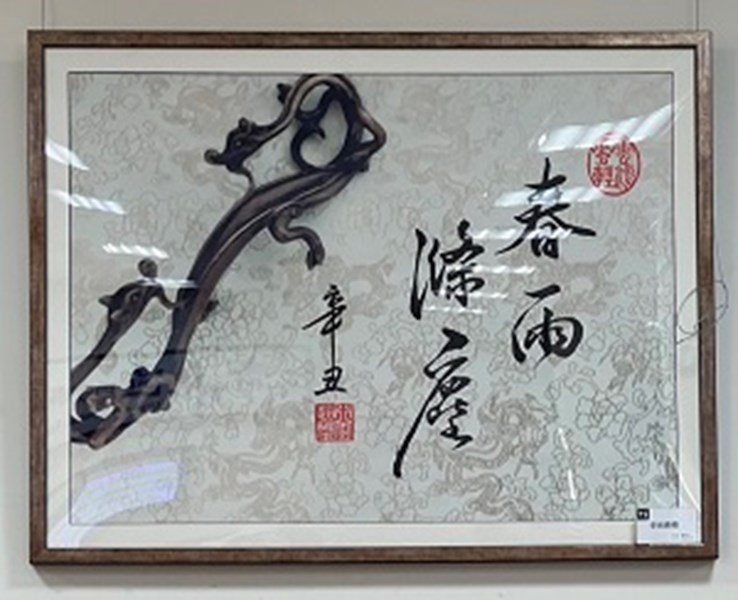 春雨
滌塵
辛丑